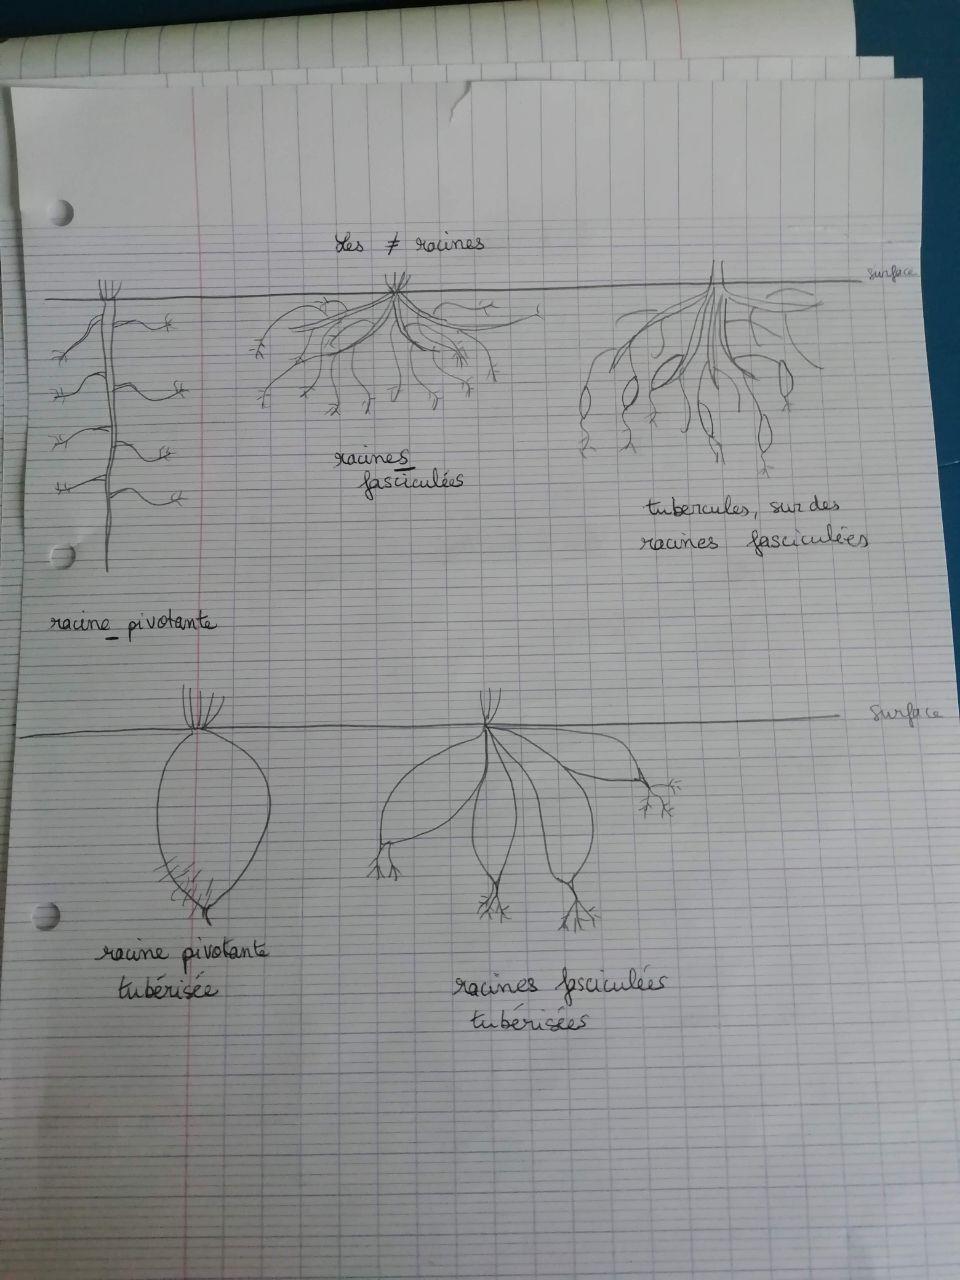 Les ≠ racines
surface
racines
fasciculées
tubercules, sur des
racines fasciculées
racine pivotante
surface
racine pivotante
tubérisée
racines fasciculées
tubérisées